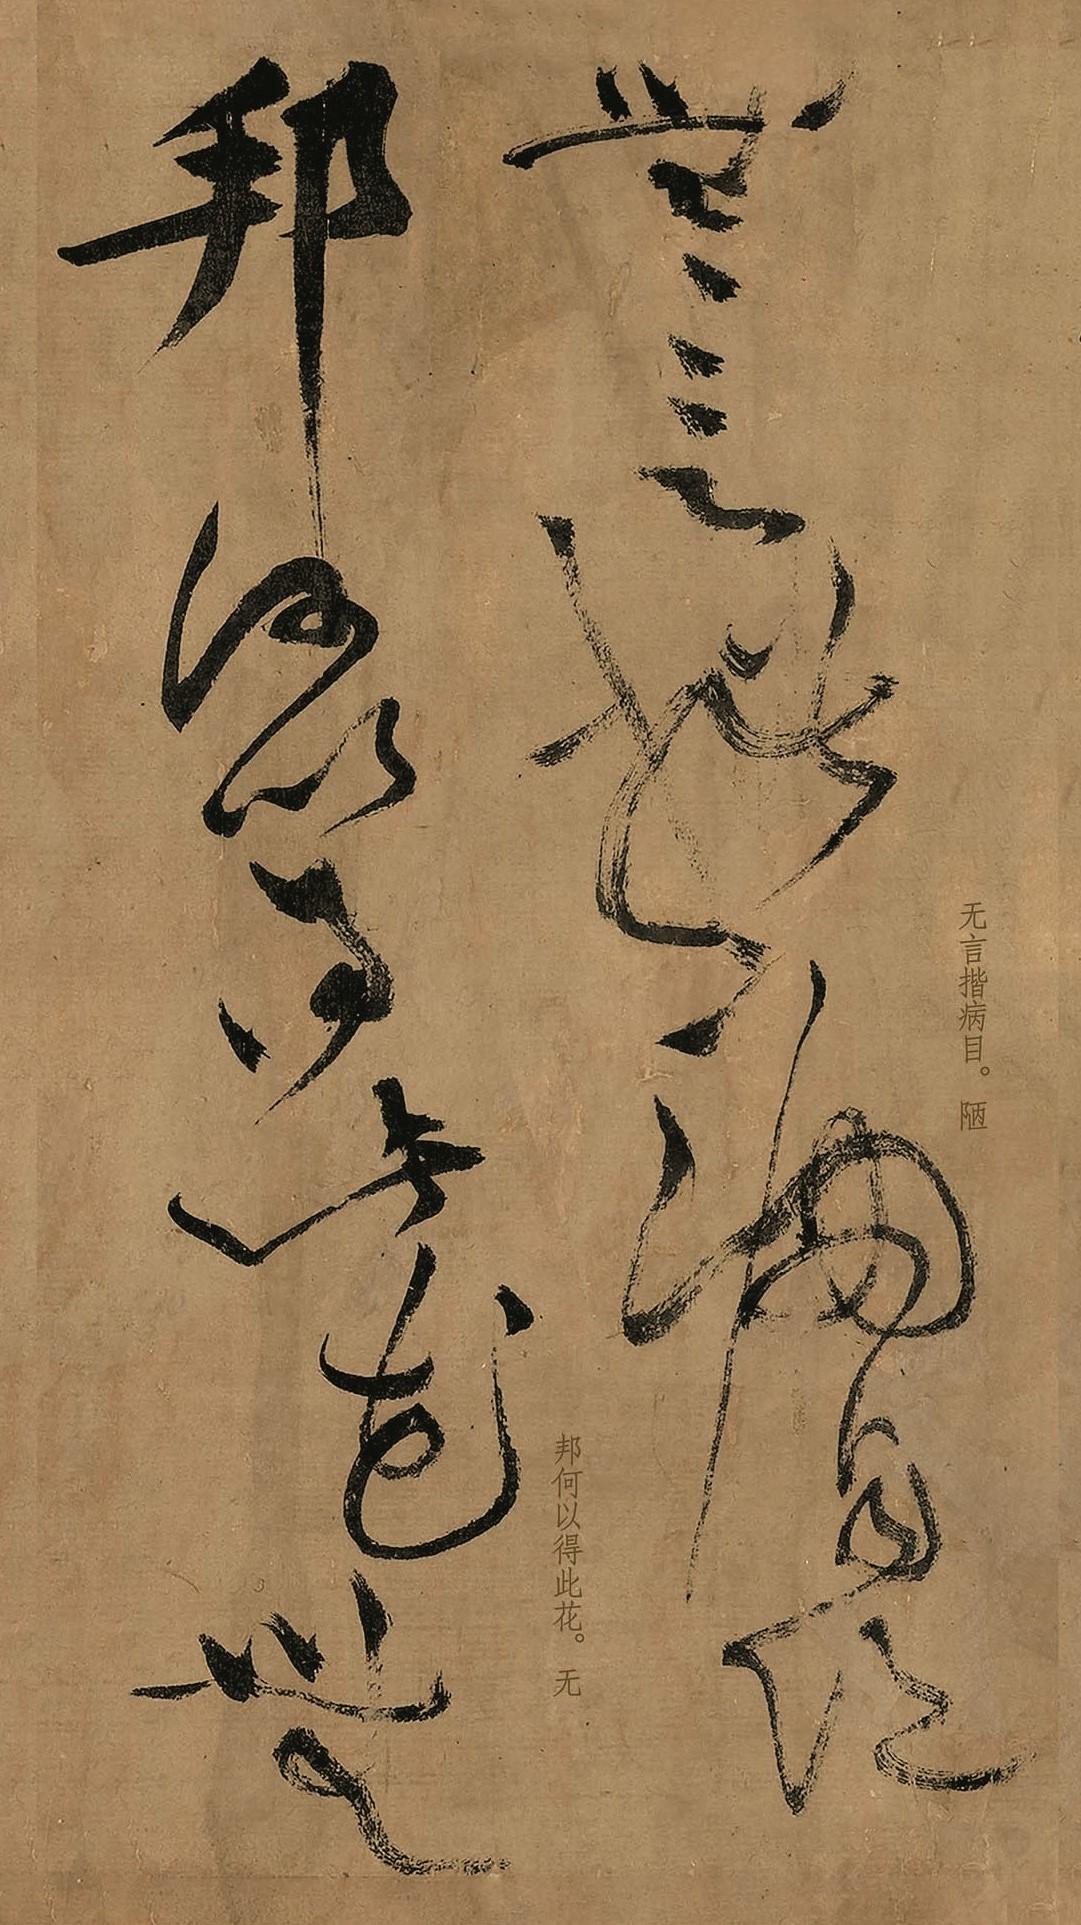 无言揩病目。 陋
無言揩病目陋
邦何以得此花。 无
邦何以得此花無